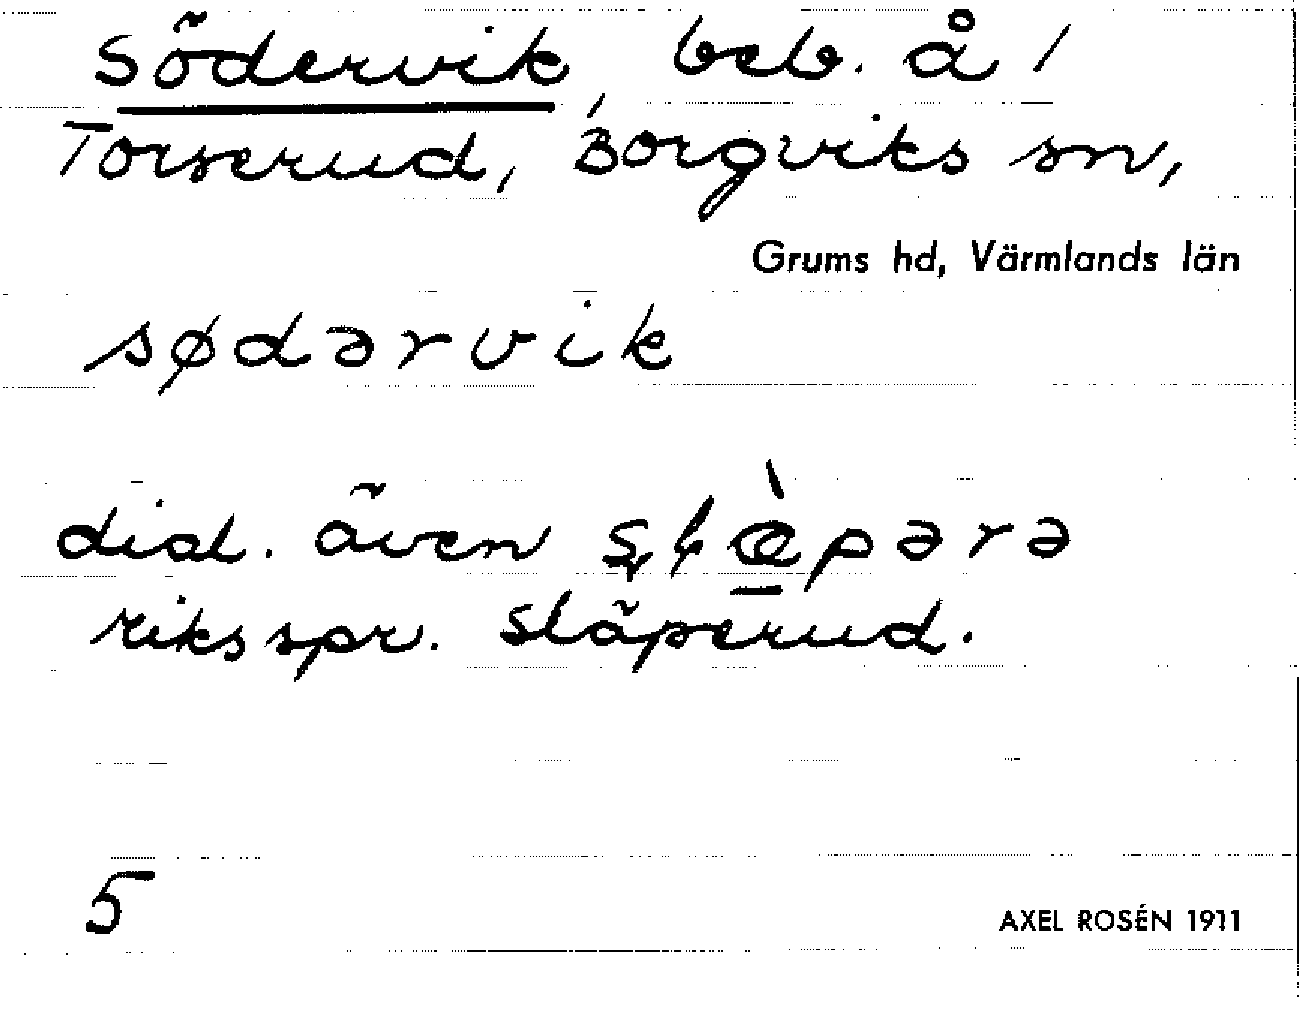 Södervik, beb. å /
Torserud, Borgviks sn,
Grums hd, Värmlands län
sødərvik
dial. även
riksspr. Släperud.
5
AXEL ROSÉN 1911